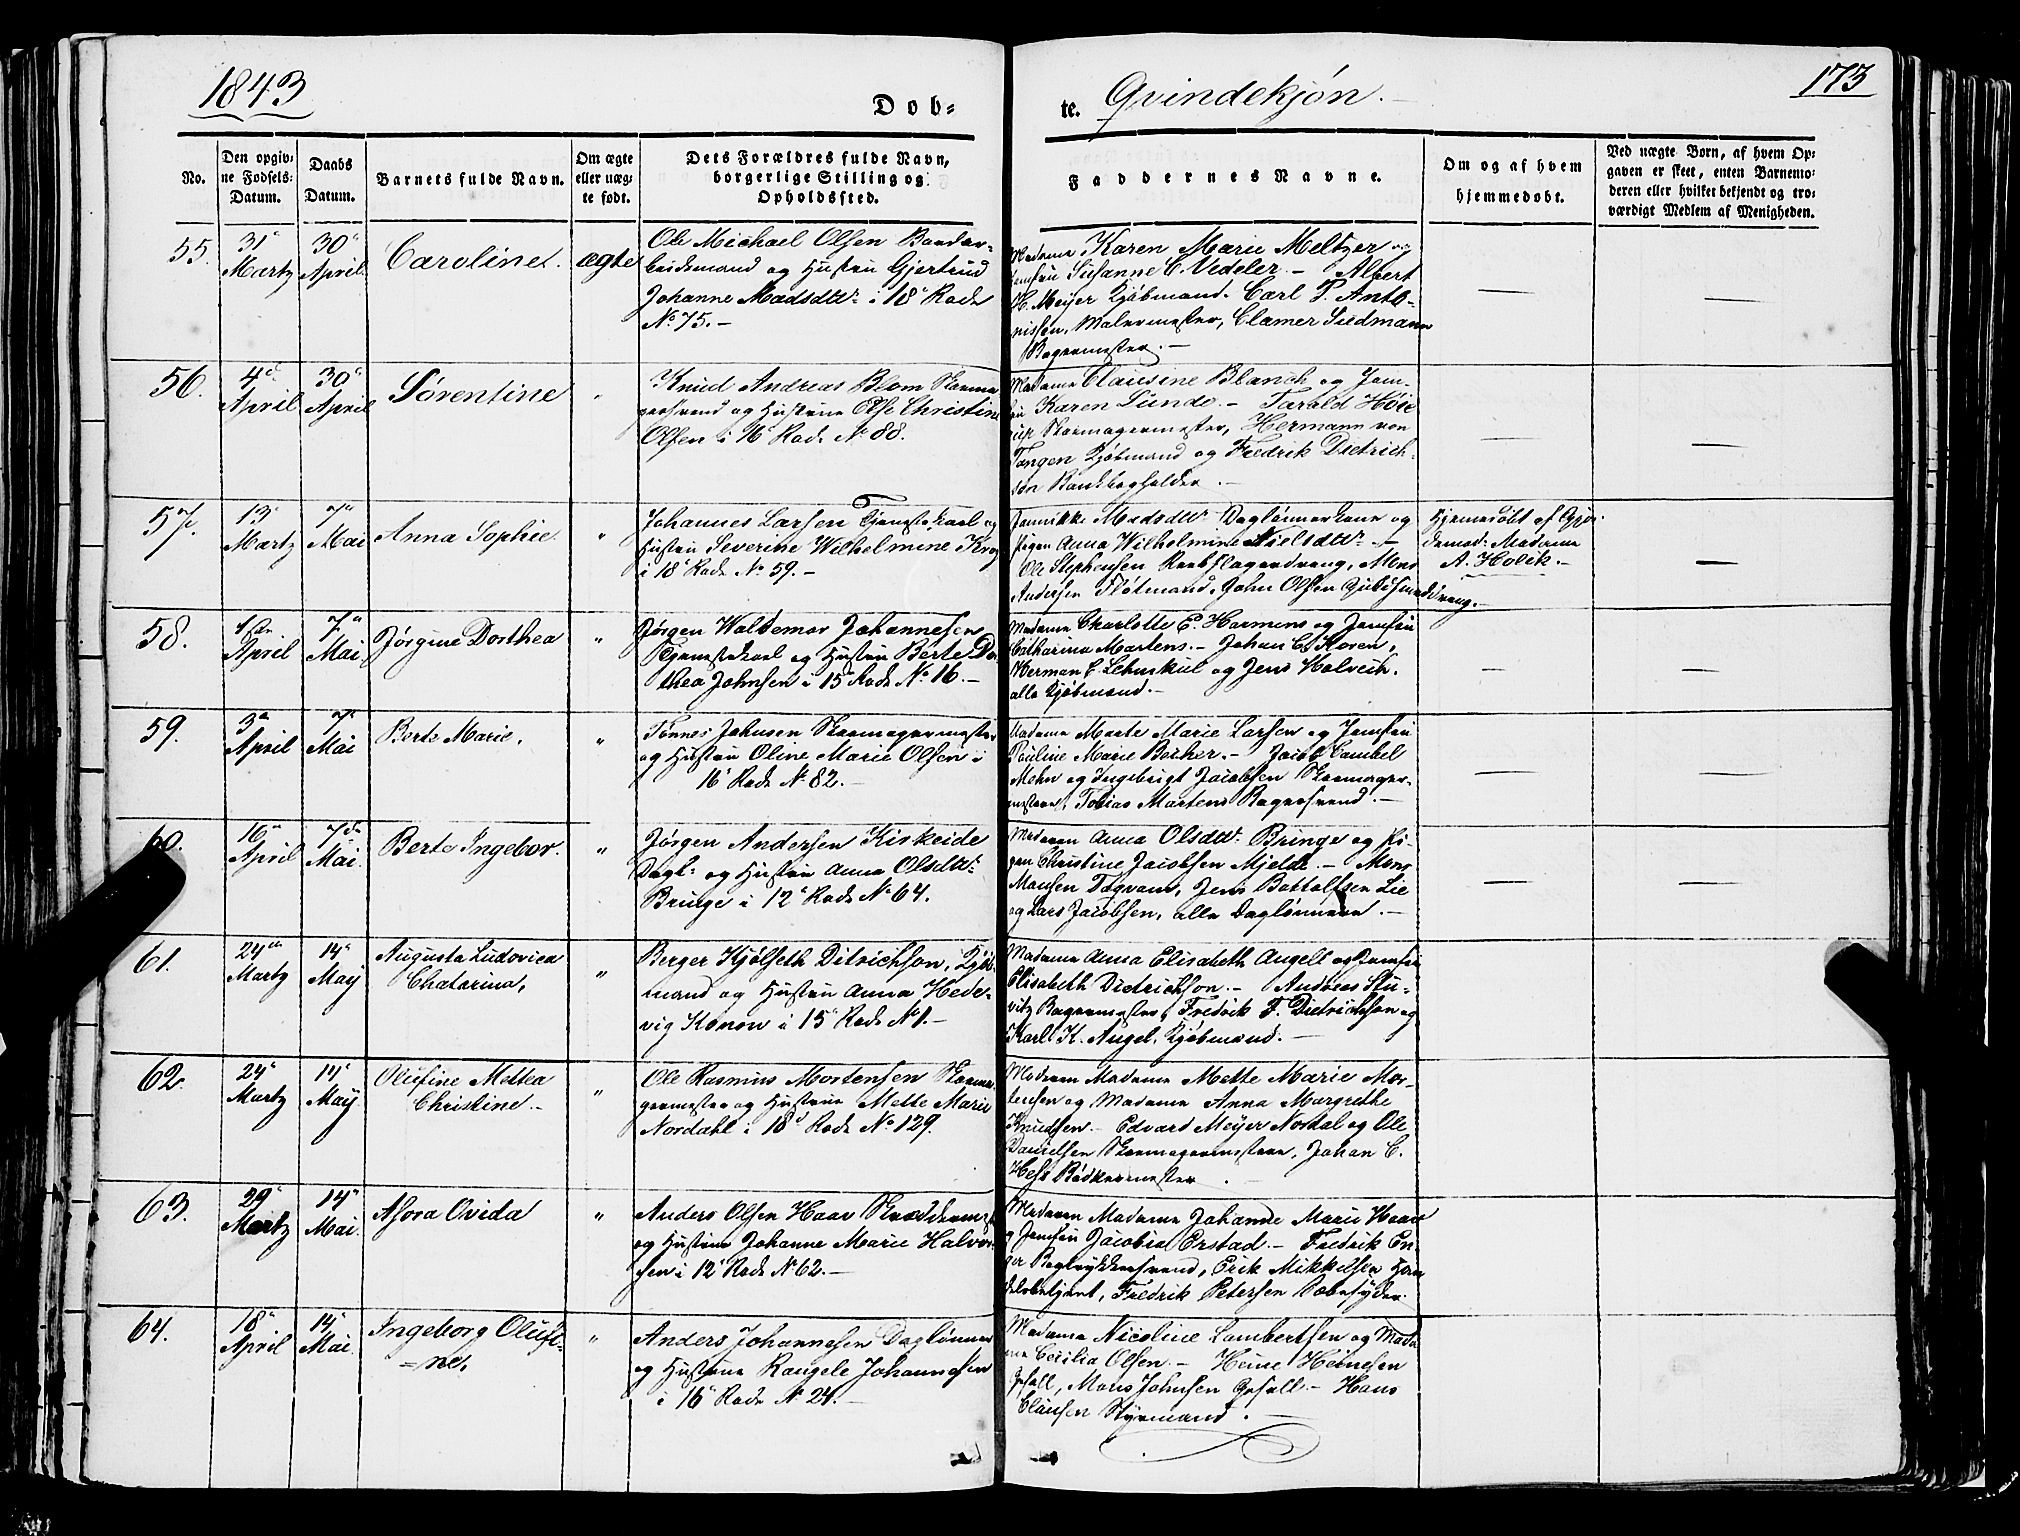 1843
Dob-
te. Qvindekjón.
173
No.
Den opgiv-
ne Fødsels-
Datum.
Daabs
Datum.
Barnets fulde Navn.
Om ægte
eller uæg-
te født.
Dets Forældres fulde Navn,
borgerlige Stilling og
Opholdssted.
Faddernes Navne.
Om og af hvem
hjemmedøbt.
Ved uægte Børn, af hvem Op-
gaven er skeet, enten Barnemo-
deren eller hvilket bekjendt og tro-
værdigt Medlem af Menigheden.
55.
31
Martz
30
April
Caroline.
ægte
Ole Michael Olsen Bandar-
beidsmand og Hustru Gjertrud
Johanne Madsdtr i 18 Rode
No 75.
Madame Karen Marie Meltzer og
Jomfru Susanne C Vedeler. - Albert
H. Meyer Kjøbmand. Carl P. Anto-
nissen, Malermester, Clamer Sudmann
Bagermester. -
56.
4
April
30
April
Sørentine
Knud Andreas Blom Skoma-
gersvend og Hustrue Else Christine
Olsen i 16 Rode No 88.
Madame Clausine Blanch og Jom-
fru Karen Lunde. - Tarald Höie
Skomagermester, Hermann von
Tangen Kjøbmand og Fredrik Dietrich-
son Bankbogholder.
57.
13
Martz
7
Mai
Anna Sophie
"
Johannes Larsen Tjenestekarl og
Hustru Severine Wilhelmine Krog
i 18 Rode No 59. -
Jannikke Madsdtr Daglønnerkone og
Pigen Anna Wilhelmine Nielsdtr. -
Ole Stephensen Rebslagerdreng, Mons
Andersen Flótmand, John Olsen Guldsmeddreng. -
Hjemmedøbt af Gjor-
demod: Madame
A. Holck. -
58.
1ste
April
7
Mai
Jørgine Dorthea
"
Jørgen Waldemar Johannesen
Tjenestekarl og Hustru Berte Do-
thea Johnsen i 15 Rode No 16. -
Madame Charlotte E. Harmens og Jomfru
Catharina Martens. - Johan C. Koren,
Herman E Lehmkul og Jens Holvich.
alle Kjøbmænd. -
59.
3
April
7
Mai
Berte Marie,
"
Tönnes Johnsen Skomagermester
og Hustru Oline Marie Olsen i
16 Rode No 82. -
Madame Marte Marie Larsen og Jomfru
Pauline Marie Becher. - Jacob Cambel
Mohn og Ingebrigt Jacobsen Skomager-
mestere, Tobias Martens Bagersvend. -
60.
16
April
7de
Mai.
Berte Ingebor.
"
Jørgen Andersen Kirkeide
Dagl: og Hustru Anna Olsdtr
Bringe i 12 Rode No 64.
Moderen Anna Olsdtr Bringe og Pi-
gen Christine Jacobsen Mjelde. - Mons
Monsen Togvam, Jens Bottolfsen Lie
og Lars Jacobsen, alle Daglønnere. -
61.
24
Martz
14
Maij
Augusta Ludovica
Chatarina,
"
Berger Kjölseth Ditrichson, Kjöb-
mand og Hustru Anna Hede-
vig Konow i 15 Rode No 1. -
Madame Anna Elisabeth Angell og Jomfru
Elisabeth Dietrichson. - Andreas Stu-
vitz Bagermester, Fredrik F. Dietrichson og
Karl K. Angel, Kjøbmænd. -
62.
24
Martz
14
Maij
Olufine Mettea
Christine. -
"
Ole Rasmus Mortensen Skoma-
germester og Hustrue Mette Marie
Nordahl i 18 Rode No 129.
Moderen Madame Mette Marie Mor-
tensen og Madame Anna Margrethe
Knudsen. - Edvard Meyer Nordal og Ole
Danielsen Skomagermestere, Johan C.
Hess Bødkermester
63.
29
Martz
14
Mai
Asora Ovida
"
Anders Olsen Haav Skreddermest
og Hustrue Johanne Marie Halvor-
sen i 12 Rode No 62. -
Moderen Madame Johanne Marie Haav
og Jomfru Jacobia Erstad. - Fredrik En-
ger Bogtrykkersvend, Erik Mikkelsen Han-
delsbetjent, Fredrik Petersen Sæbesyder.
64.
18
April
14
Mai
Ingeborg Olufi-
=ne,
"
Anders Johannesen Daglønner
og Hustrue Rangele Johannesen
i 16 Rode No 24. -
Madame Nicoline Lambertsen og Mada-
me Cecilia Olsen. - Heine Heinesen
Gesell, Mons Johnsen Gesell - Hans
Clausen Styrmand.